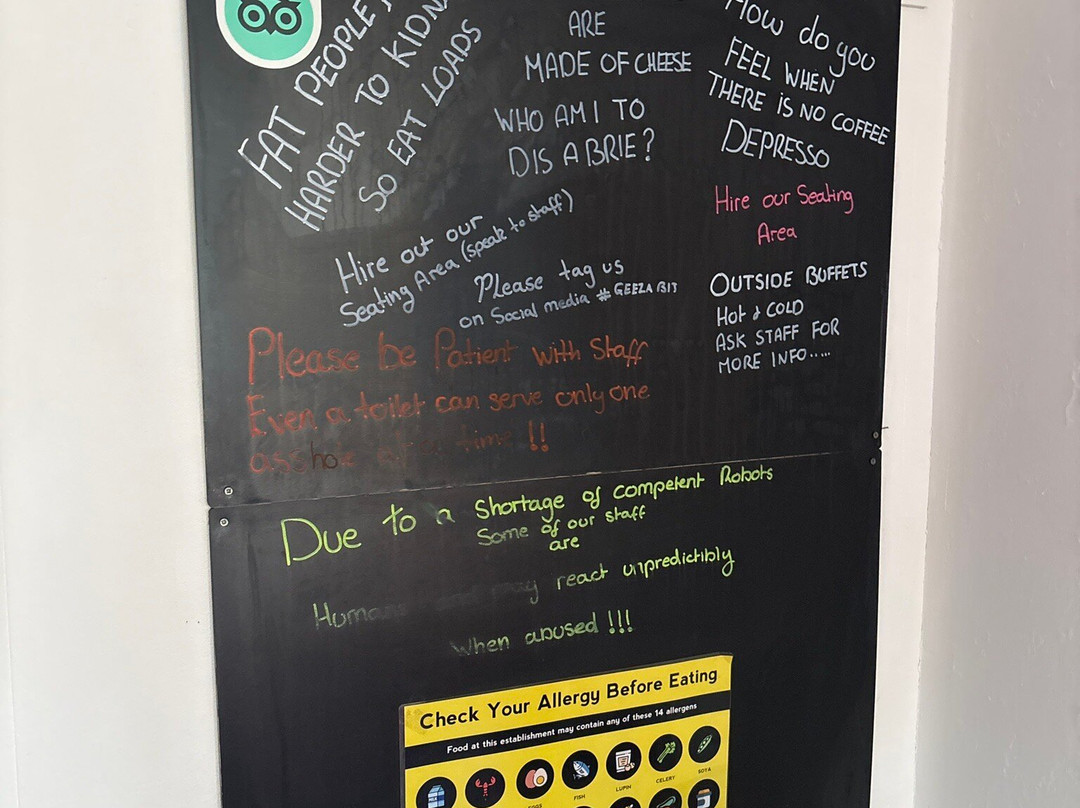 FAT PEOPLE
HARDER TO
SO EAT LOADS
ARE
MADE OF CHEESE
WHO AM I TO
DIS A BRIE?
How do you
FEEL WHEN
THERE IS NO COFFEE
DEPRESSO
Hire our Seating
Area
OUTSIDE BUFFETS
Hot & COLD
ASK STAFF FOR
MORE INFO.....
Hire out our
Seating Area (speak to staff)
Please tag us
on Social media # GEEZA BIT
Please be Patient with Staff
Even a toilet can serve only one
asshole time !!
Due to a Shortage of competent Robots
Some of our staff
are
may react unpredictibly
when abused !!!
Check Your Allergy Before Eating
Food at this establishment may contain any of these 14 allergens
EGGS
FISH
LUPIN
CELERY
SOYA